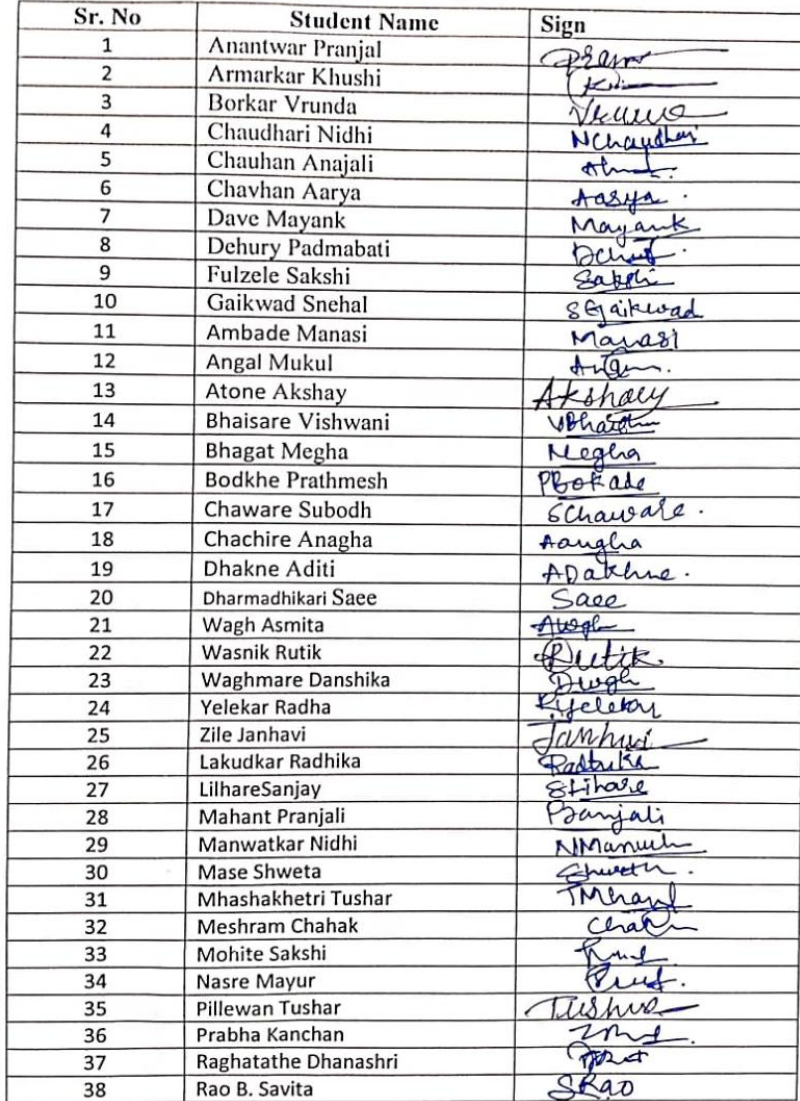 Sr. No Student Name Sign
1 Anantwar Pranjal
2 Armarkar Khushi
3 Borkar Vrunda
4 Chaudhari Nidhi NChaudhari
5 Chauhan Anajali
6 Chavhan Aarya Aarya
7 Dave Mayank Mayank
8 Dehury Padmabati
9 Fulzele Sakshi Sakshi
10 Gaikwad Snehal SGaikwad
11 Ambade Manasi Manasi
12 Angal Mukul
13 Atone Akshay Akshay
14 Bhaisare Vishwani
15 Bhagat Megha Megha
16 Bodkhe Prathmesh PBokade
17 Chaware Subodh SChaware.
18 Chachire Anagha Aangha
19 Dhakne Aditi ADakhne.
20 Dharmadhikari Saee Saee
21 Wagh Asmita
22 Wasnik Rutik Rutik.
23 Waghmare Danshika
24 Yelekar Radha
25 Zile Janhavi Janhvi
26 Lakudkar Radhika Radhika
27 LilhareSanjay
28 Mahant Pranjali
29 Manwatkar Nidhi
30 Mase Shweta
31 Mhashakhetri Tushar
32 Meshram Chahak
33 Mohite Sakshi
34 Nasre Mayur
35 Pillewan Tushar
36 Prabha Kanchan
37 Raghatathe Dhanashri
38 Rao B. Savita SRao